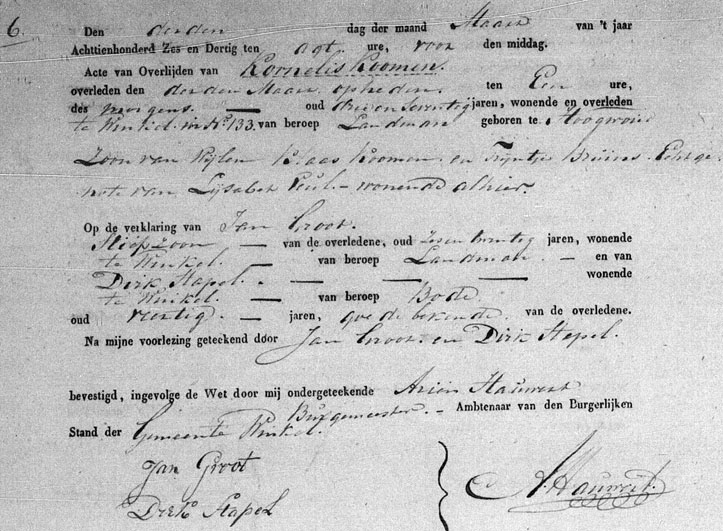 6.
Den derden dag der maand Maart van 't jaar
Achttienhonderd Zes en Dertig ten agt ure, voor den middag.
Acte van Overlijden van Kornelis Koomen.
overleden den derden Maart op heden. ten Een ure,
des morgens. oud drie en seventig jaren, wonende en overleden
te Winkel in No. 133. van beroep Landman geboren te Hoogwoud
Zoon van Wijlen Klaas Koomen en Trijntje Bruins. Echtge-
note van Lijsabet Peul. wonende alhier.
Op de verklaring van Jan Groot.
Stiefzoon van de overledene, oud Zes en twintig jaren, wonende
te Winkel. van beroep Landman. en van
Dirk Stapel. wonende
te Winkel. van beroep Bode
oud veertig. jaren, goede bekende van de overledene.
Na mijne voorlezing geteekend door Jan Groot en Dirk Stapel.
bevestigd, ingevolge de Wet door mij ondergeteekende Ariën Hauwert
Burgemeester. Ambtenaar van den Burgerlijken
Stand der Gemeente Winkel.
Jan Groot
Dirk Stapel
A. Hauwert.